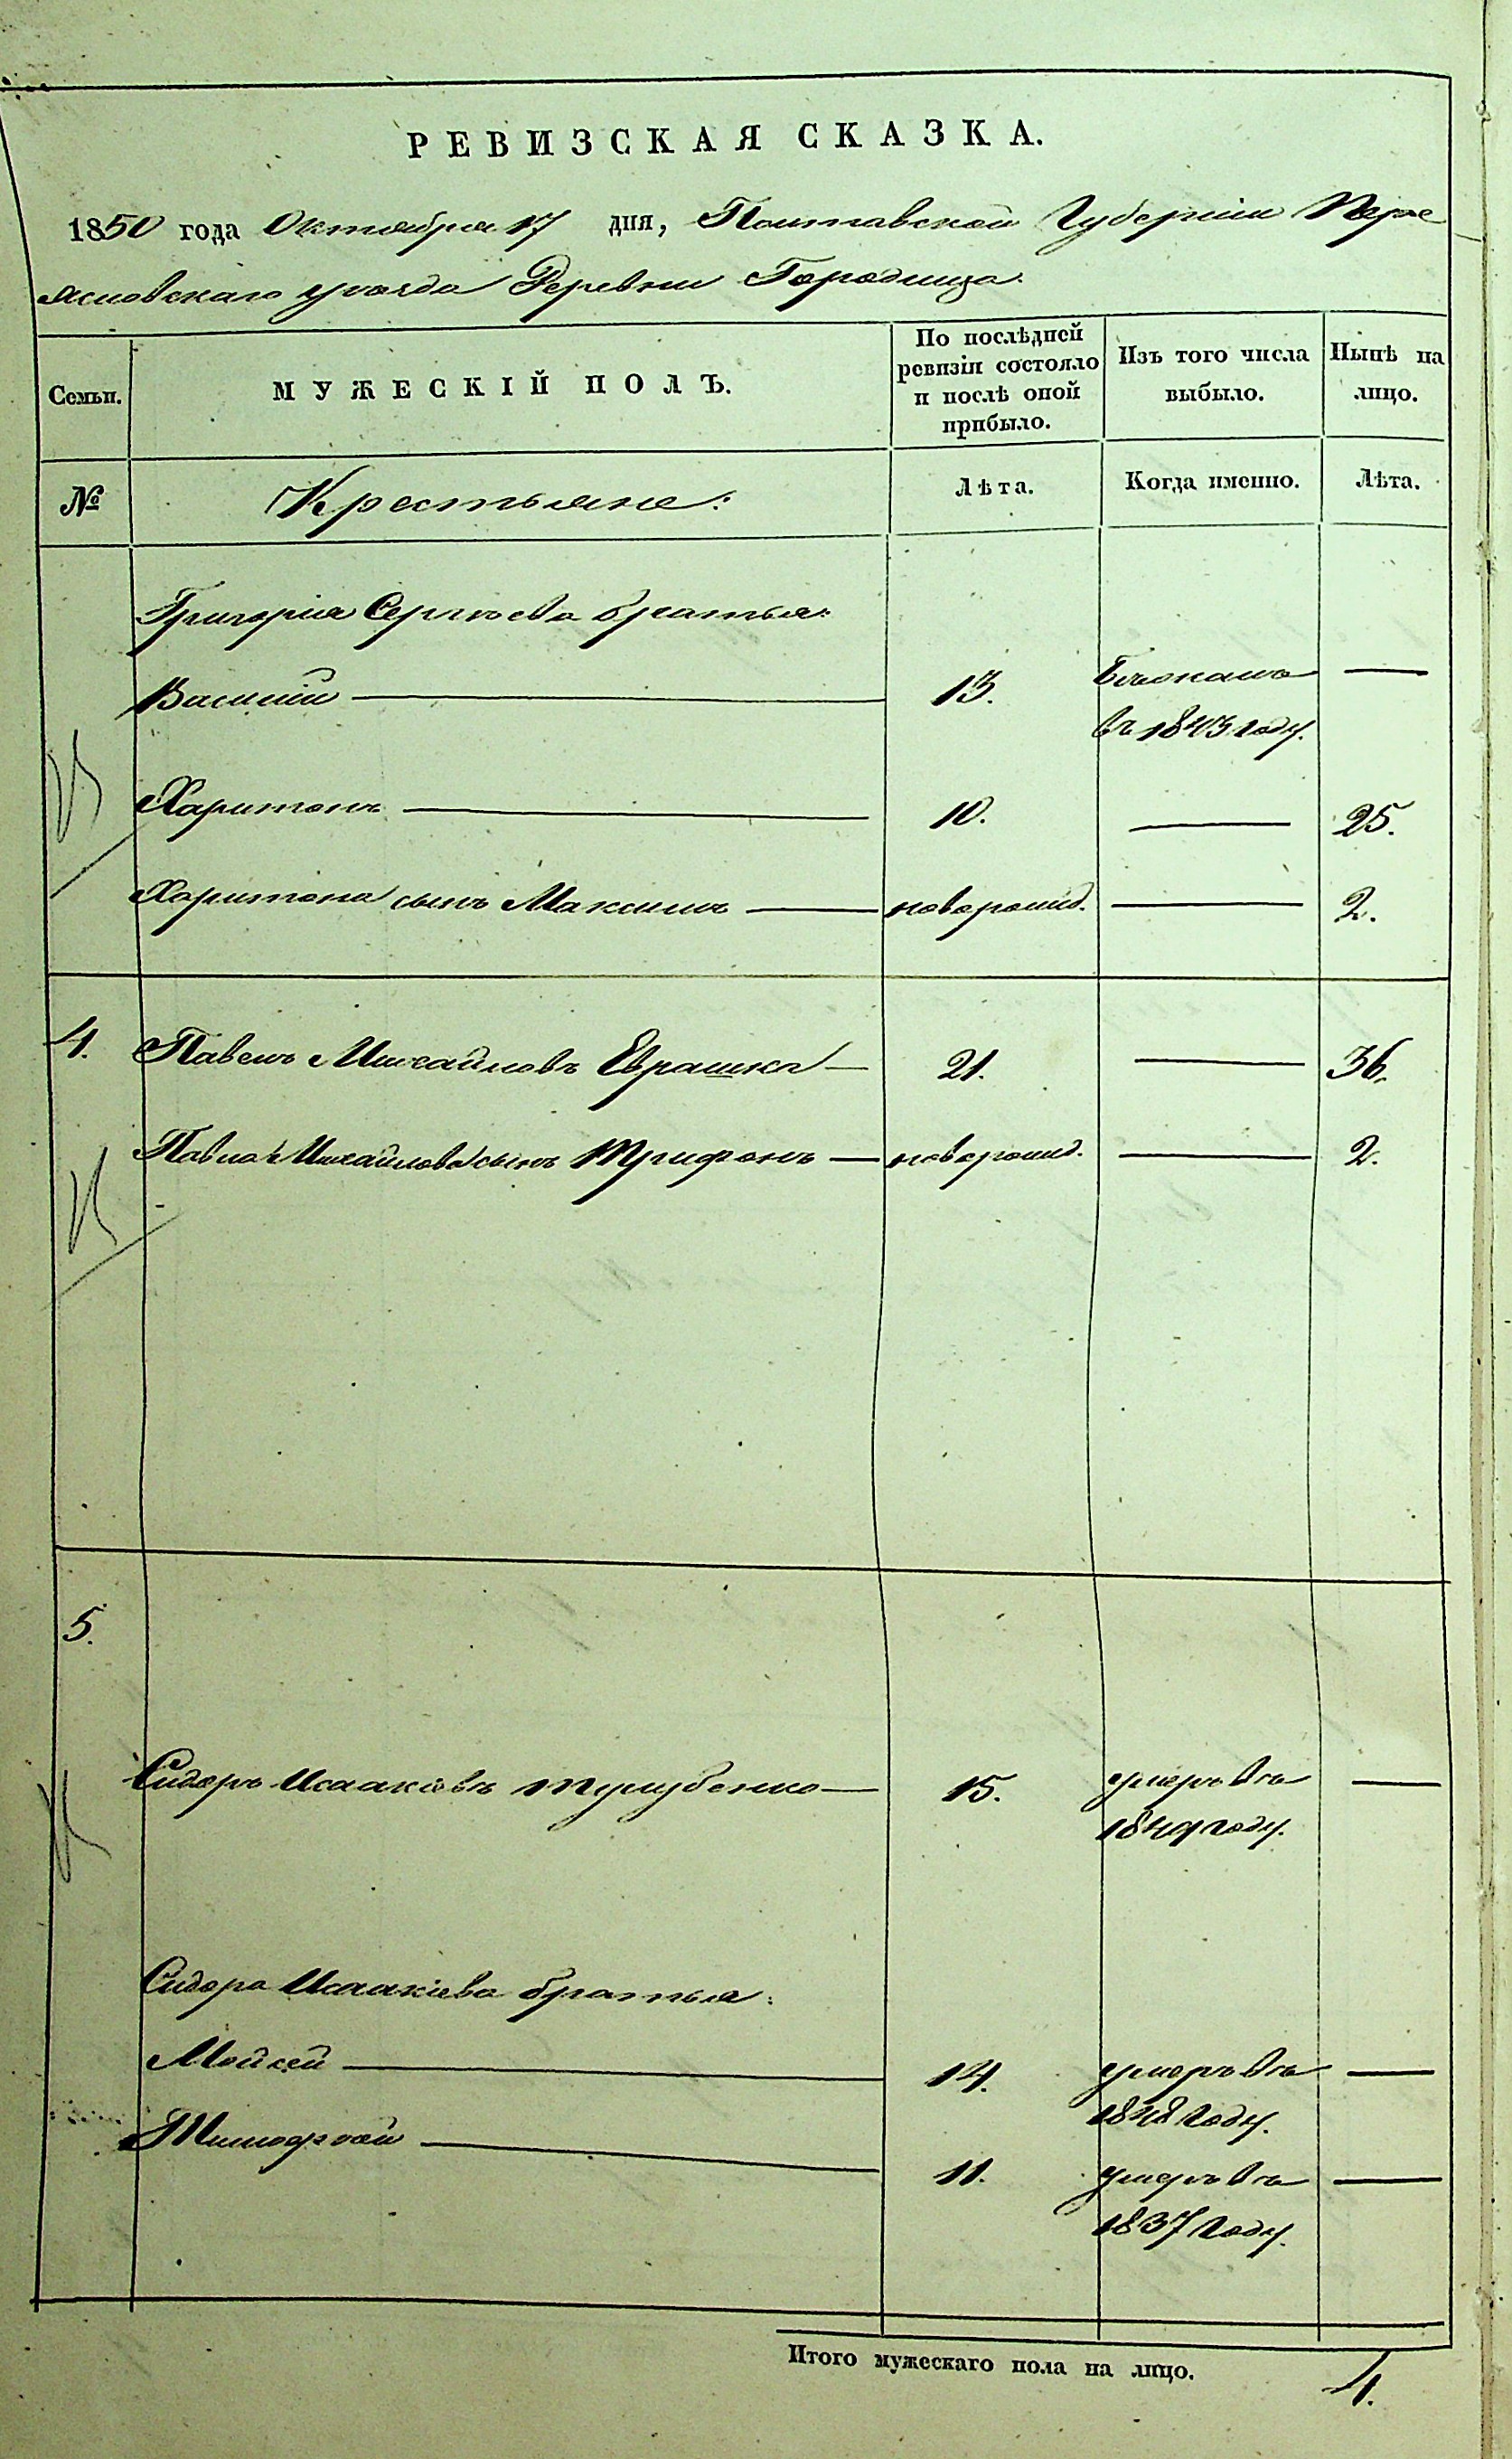 РЕВИЗСКАЯ СКАЗКА.
1850 года Октября 17 дня, Полтавской Губерніи Пере
яславскаго уѣзда Деревни Городища.
Семьи.
МУЖЕСКІЙ ПОЛЪ.
По послѣдней
ревизіи состояло
и послѣ оной
прибыло.
Изъ того числа
выбыло.
Нынѣ на
лицо.
№
Крестьяне:
Лѣта.
Когда именно.
Лѣта.
Григорія Сергѣева братья:
Василій 13. Бѣжалъ
въ 1843 году.
Харитонъ 10. 25.
Харитона сынъ Максимъ новорожд. 2.
4. Павелъ Михайловъ Еврашка 21. 36.
Павла Михайлова сынъ Трифонъ новорожд. 2.
5.
Сидоръ Исаакіевъ Трубенко 15. умеръ въ
1849 году.
Сидора Исаакіева братья:
Мойсей 14. умеръ въ
1848 году.
Тимофѣй 11. умеръ въ
1837 году.
Итого мужескаго пола на лицо. 4.